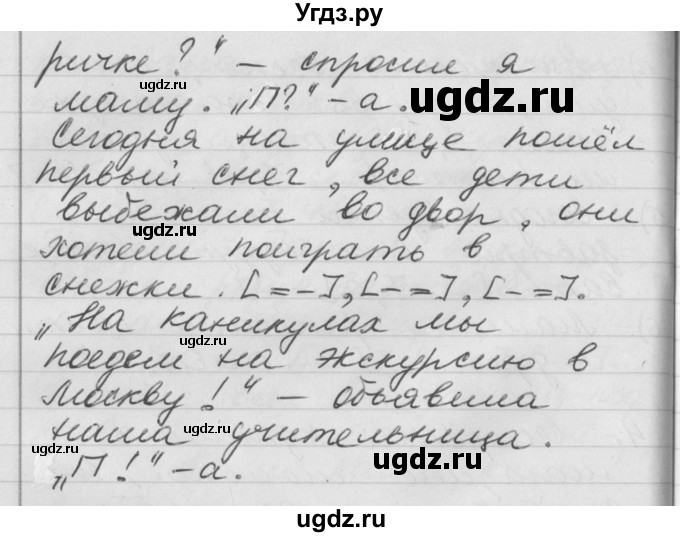 Угдз.ру
ричке?" – спросил я
маму. „П?" – а.
ugdz.ru
Сегодня на улице пошёл
первый снег, все дети
выбежали во двор, они
ugdz.ru
хотели поиграть в
снежки. [= –], [– =], [– =].
„На каникулах мы
ugdz.ru
поедем на экскурсию в
Москву!" – объявила
ugdz.ru
наша учительница.
ugdz.ru
„П!" – а.
ugdz.ru
ugdz.ru